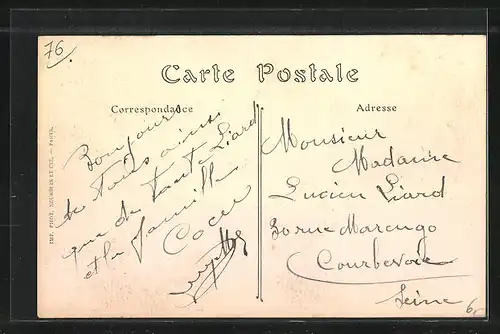 76
Carte Postale
Correspondance
Adresse
Bonjour
de tous ainsi
que de tante Liard
et la famille
Monsieur
Madame
Lucien Liard
30 rue Marengo
Courbevoie
Seine
IMP. PHOT. NEURDEIN ET CIE. — PARIS.